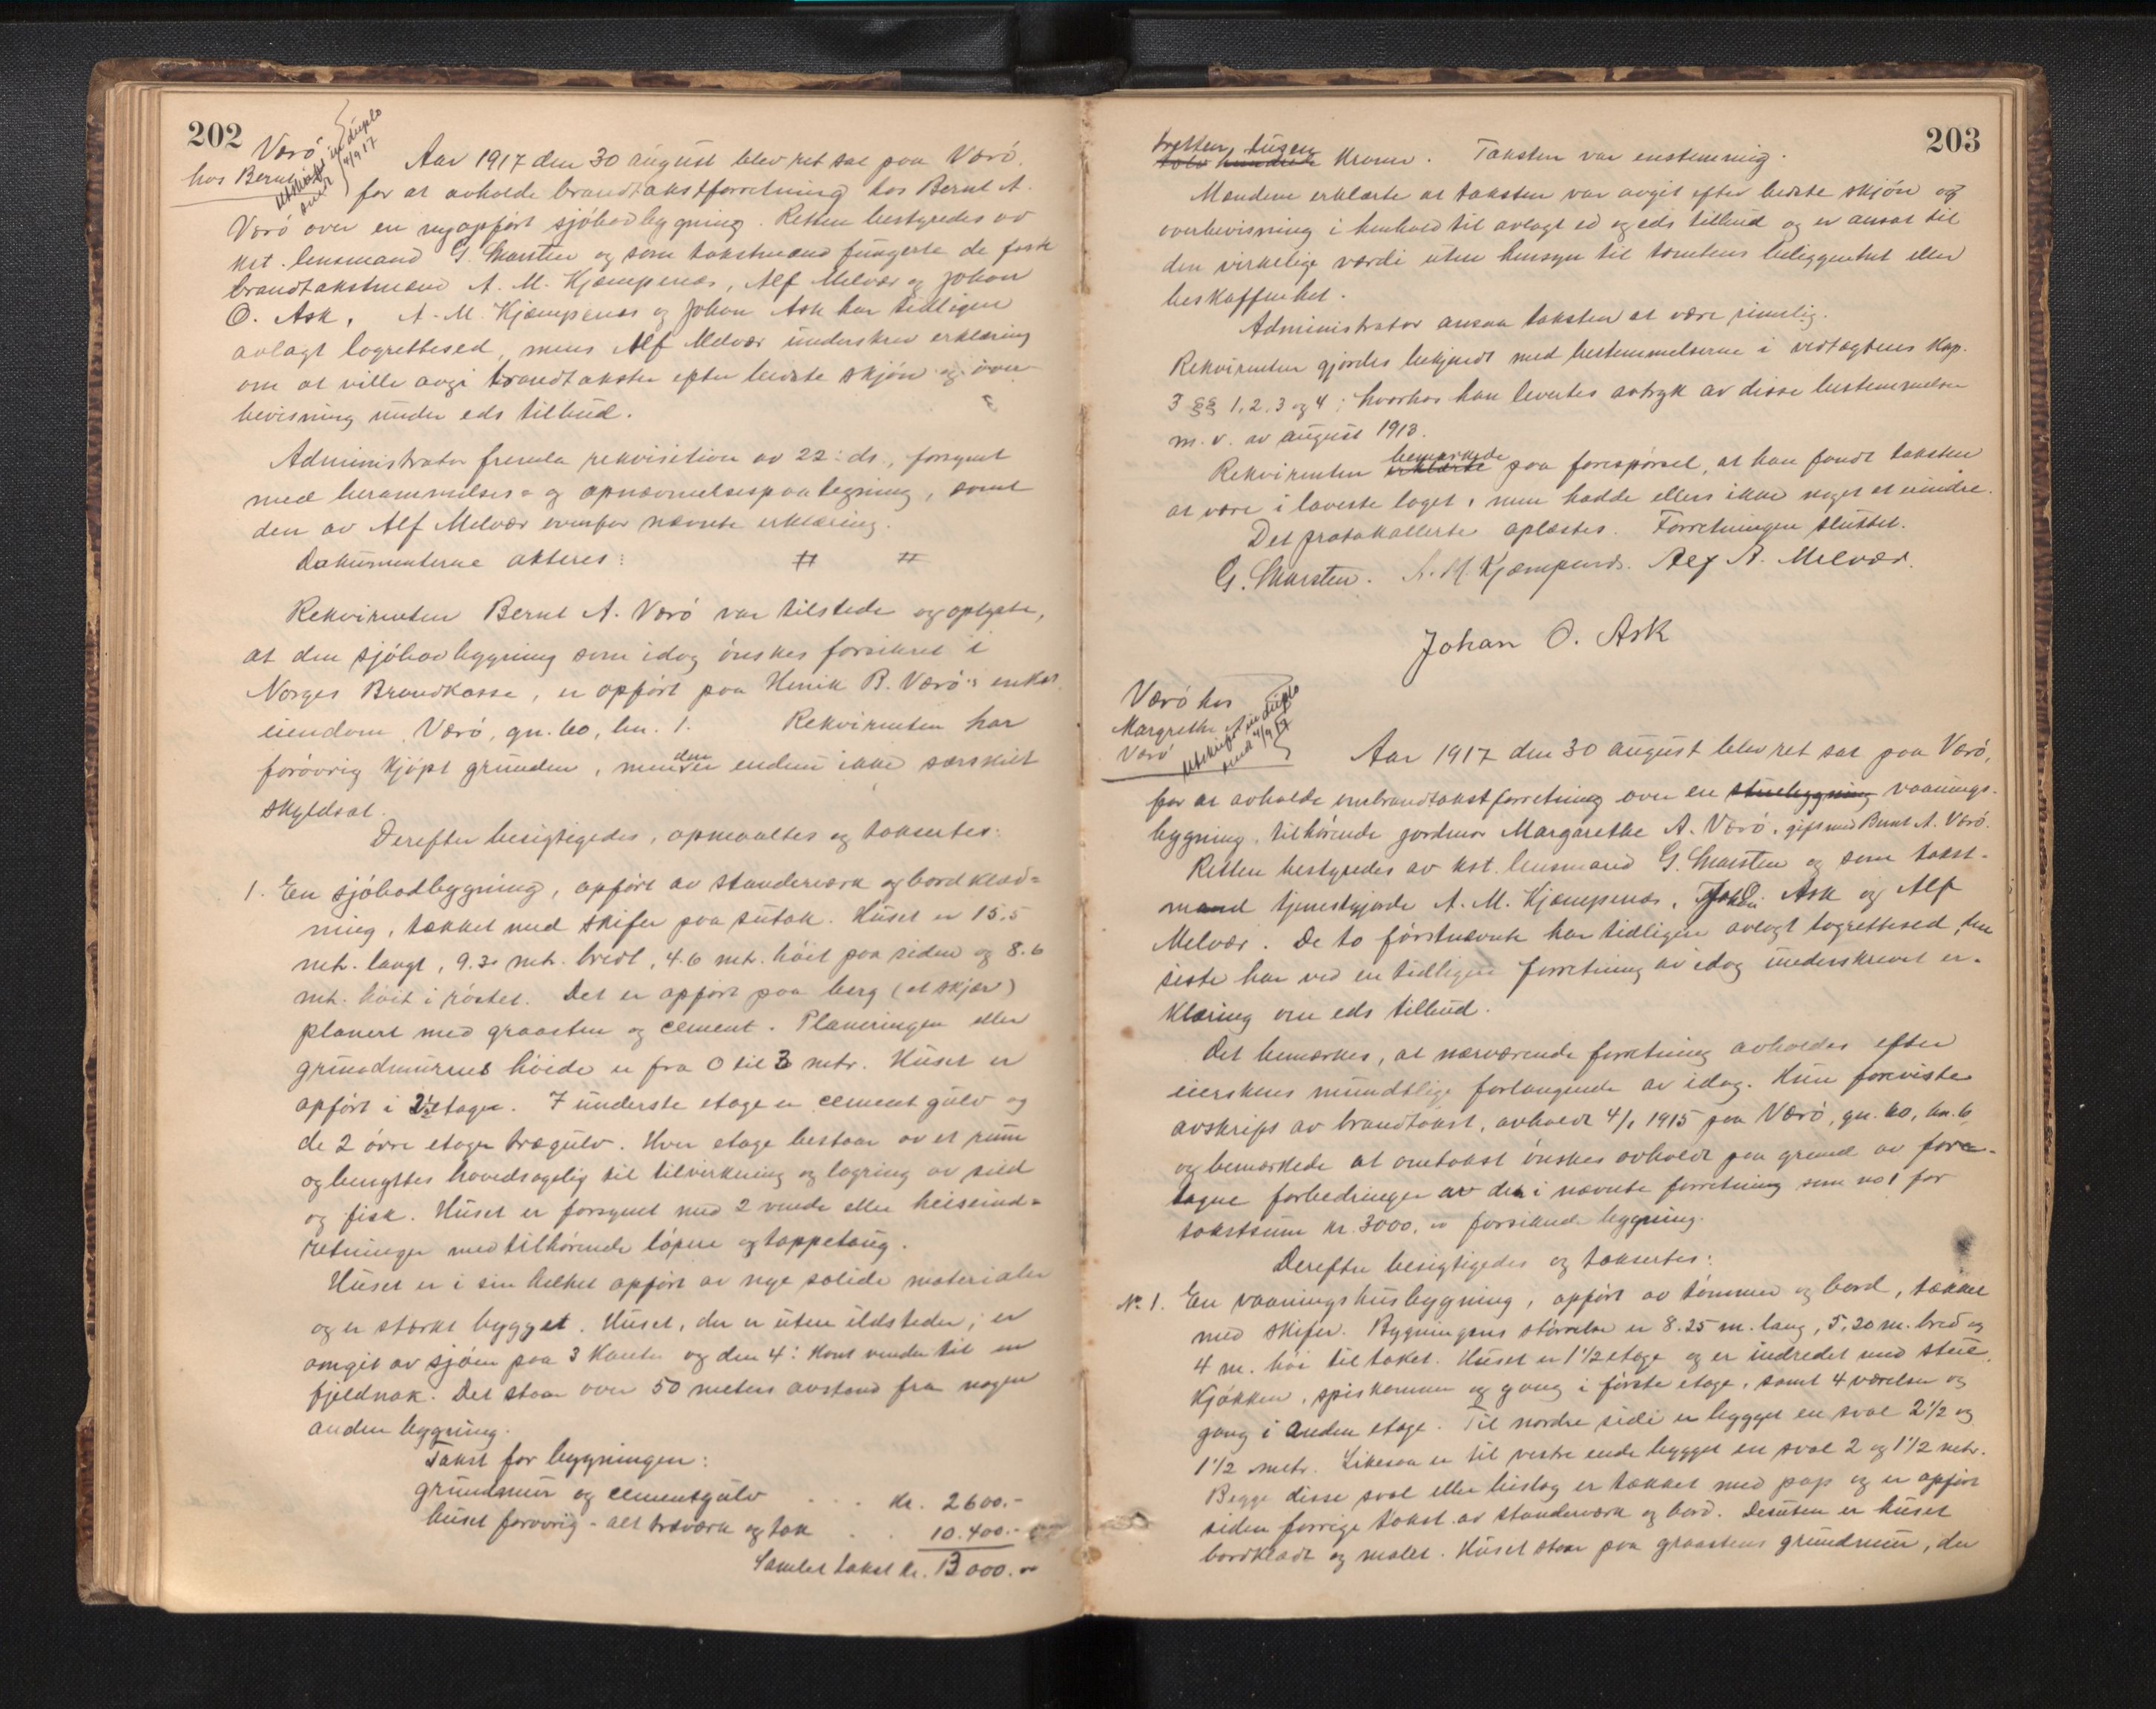 202
Værö
hos Bernt
Utskrift in duplo
sendt 4/9 17
Aar 1917 den 30 august blev ret sat paa Værö.
for at avholde brandtakstforretning hos Bernt A.
Værö over en nyopfört sjöbodbygning. Retten bestyredes av
kst. lensmand G. Marsten og som takstmænd fungerte de faste
brandtakstmænd A. M. Kjempenes, Alf Melvær og Johan
O. Ask. A. M. Kjæmpenes og Johan Ask har tidligere
avlagt lagrettesed, mens Alf Melvær underskrev erklæring
om at ville avgi brandtakster efter bedste skjön og over-
bevisning under eds tilbud.
Administrator fremla rekvisition av 22: ds., forsynt
med berammelses- og opnævnelsespaategning, samt
den av Alf Melvær ovenfor nævnte erklæring.
Dokumenterne akteres: # #
Rekvirenten Bernt A. Værö var tilstede og oplyste,
at den sjöbodbygning som idag önskes forsikret i
Norges Brandkasse, er opfört paa Henrik B. Værö's enkes
eiendom Værö, gn. 60, bn. 1. Rekvirenten har
forövrig kjöpt grunden, men den er endnu ikke særskilt
skyldsat.
Derefter besigtigedes, opmaaltes og taksertes:
1. En sjöbodbygning, opfört av standerværk og bordklæd-
ning, tækket med skifer paa sutak. Huset er 15,5
mtr. langt, 9.30 mtr. bredt, 4.6 mtr. höit paa siden og 8.6
mt. höit i röstet. Det er opfört paa berg (et skjær)
planert med graasten og cement. Planeringen eller
grundmurens höide er fra 0 til 3 mtr. Huset er
opfört i 2½ etager. I underste etage er cementgulv og
de 2 övre etager trægulv. Hver etage bestaar av et rum
og benyttes hovedsagelig til tilvirkning og lagring av sild
og fisk. Huset er forsynet med 2 vinde eller heiseind-
retninger med tilhörende löpere og tappetaug.
Huset er i sin helhet opfört av nye solide materialer
og er stærkt bygget. Huset, der er uten ildsteder, er
omgit av sjöen paa 3 kanter og den 4: kant vender til en
fjeldnak. Det staar over 50 meters avstand fra nogen
anden bygning.
Takst for bygningen:
grundmur og cementgulv . . . kr. 2600.-
huset forövrig - alt træværk og tak . . 10.400.-
Samlet takst kr. 13000.-
203
tretten tusen
tolv hundrede kroner. Taksten var enstemmig.
Mændene erklærte at taksten var avgit efter bedste skjön og
overbevisning i henhold til avlagt ed og eds tilbud og er ansat til
den virkelige værdi uten hensyn til tomtens beliggenhet eller
beskaffenhet.
Administrator ansaa taksten at være rimelig.
Rekvirenten gjordes bekjendt med bestemmelserne i vedtægtens Kap.
3 §§ 1, 2, 3 og 4; hvorhos han levertes avtryk av disse bestemmelser
m. v. av august 1913.
bemerkede
Rekvirenten erklærte paa forespörsel, at han fandt taksten
at være i laveste laget, men hadde ellers ikke noget at eindre.
Det protokollerte oplæstes. Forretningen sluttet.
G. Marsten. A. M. Kjæmpenes. Alf A. Melvær.
Johan O. Ask
Værö hos
Margrethe A.
Værö
Utskrift in duplo
sendt 4/9 17
Aar 1917 den 30 august blev ret sat paa Værö,
for at avholde ombrandtakstforretning over en stuebygning vaanings-
bygning, tilhörende jordmor Margarethe A. Værö, gift med Bernt A. Værö.
Retten bestyredes av kst. lensmand G. Marsten og som takst-
mænd tjenestgjorde A. M. Kjæmpenes, Joh. O. Ask og Alf
Melvær. De to förstnævnte har tidligere avlagt lagrettesed, den
siste har ved en tidligere forretning av idag underskrevet er-
klæring om eds tilbud.
Det bemærkes, at nærværende forretning avholdes efter
eierskens mundtlige forlangende av idag. Hun foreviste
avskrift av brandtakst, avholdt 4/1 1915 paa Værö, gn. 60, bn. 6
og bemærkede at omtakst önskes avholdt paa grund av fore-
tagne forbedringer av den i nævnte forretning som no 1 for
takstsum kr. 3000.00 forsikrede bygning.
Derefter besigtigedes og taksertes:
No 1. En vaaningshusbygning, opfört av tömmer og bord, tækket
med skifer. Bygningens störrelse er 8.25 m. lang, 5,20 m. bred og
4 m. höi til taket. Huset er 1½ etage og er indredet med stue,
kjökken, spiskammer og gang i förste etage, samt 4 værelser og
gang i anden etage. Til nordre side er bygget en sval 2½ og
1½ mtr. Likesaa er til vestre ende bygget en sval 2 og 1½ mtr.
Begge disse sval eller bislag er tækket med pap og er opfört
siden forrige takst av standerværk og bord. Desuten er huset
bordklædt og malet. Huset staar paa graastens grundmur, der